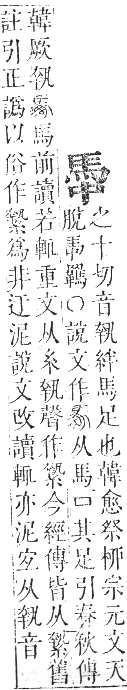 馽
之十切音執絆馬足也韓愈祭柳宗元文天
脫馽羈○說文作馽从馬口其足引春秋傳
韓厥執馽馬前讀若輒重文从糸執聲作縶今經傳皆从縶舊
註引正譌以俗作縶爲非迂泥說文攺讀輒亦泥宜从執音